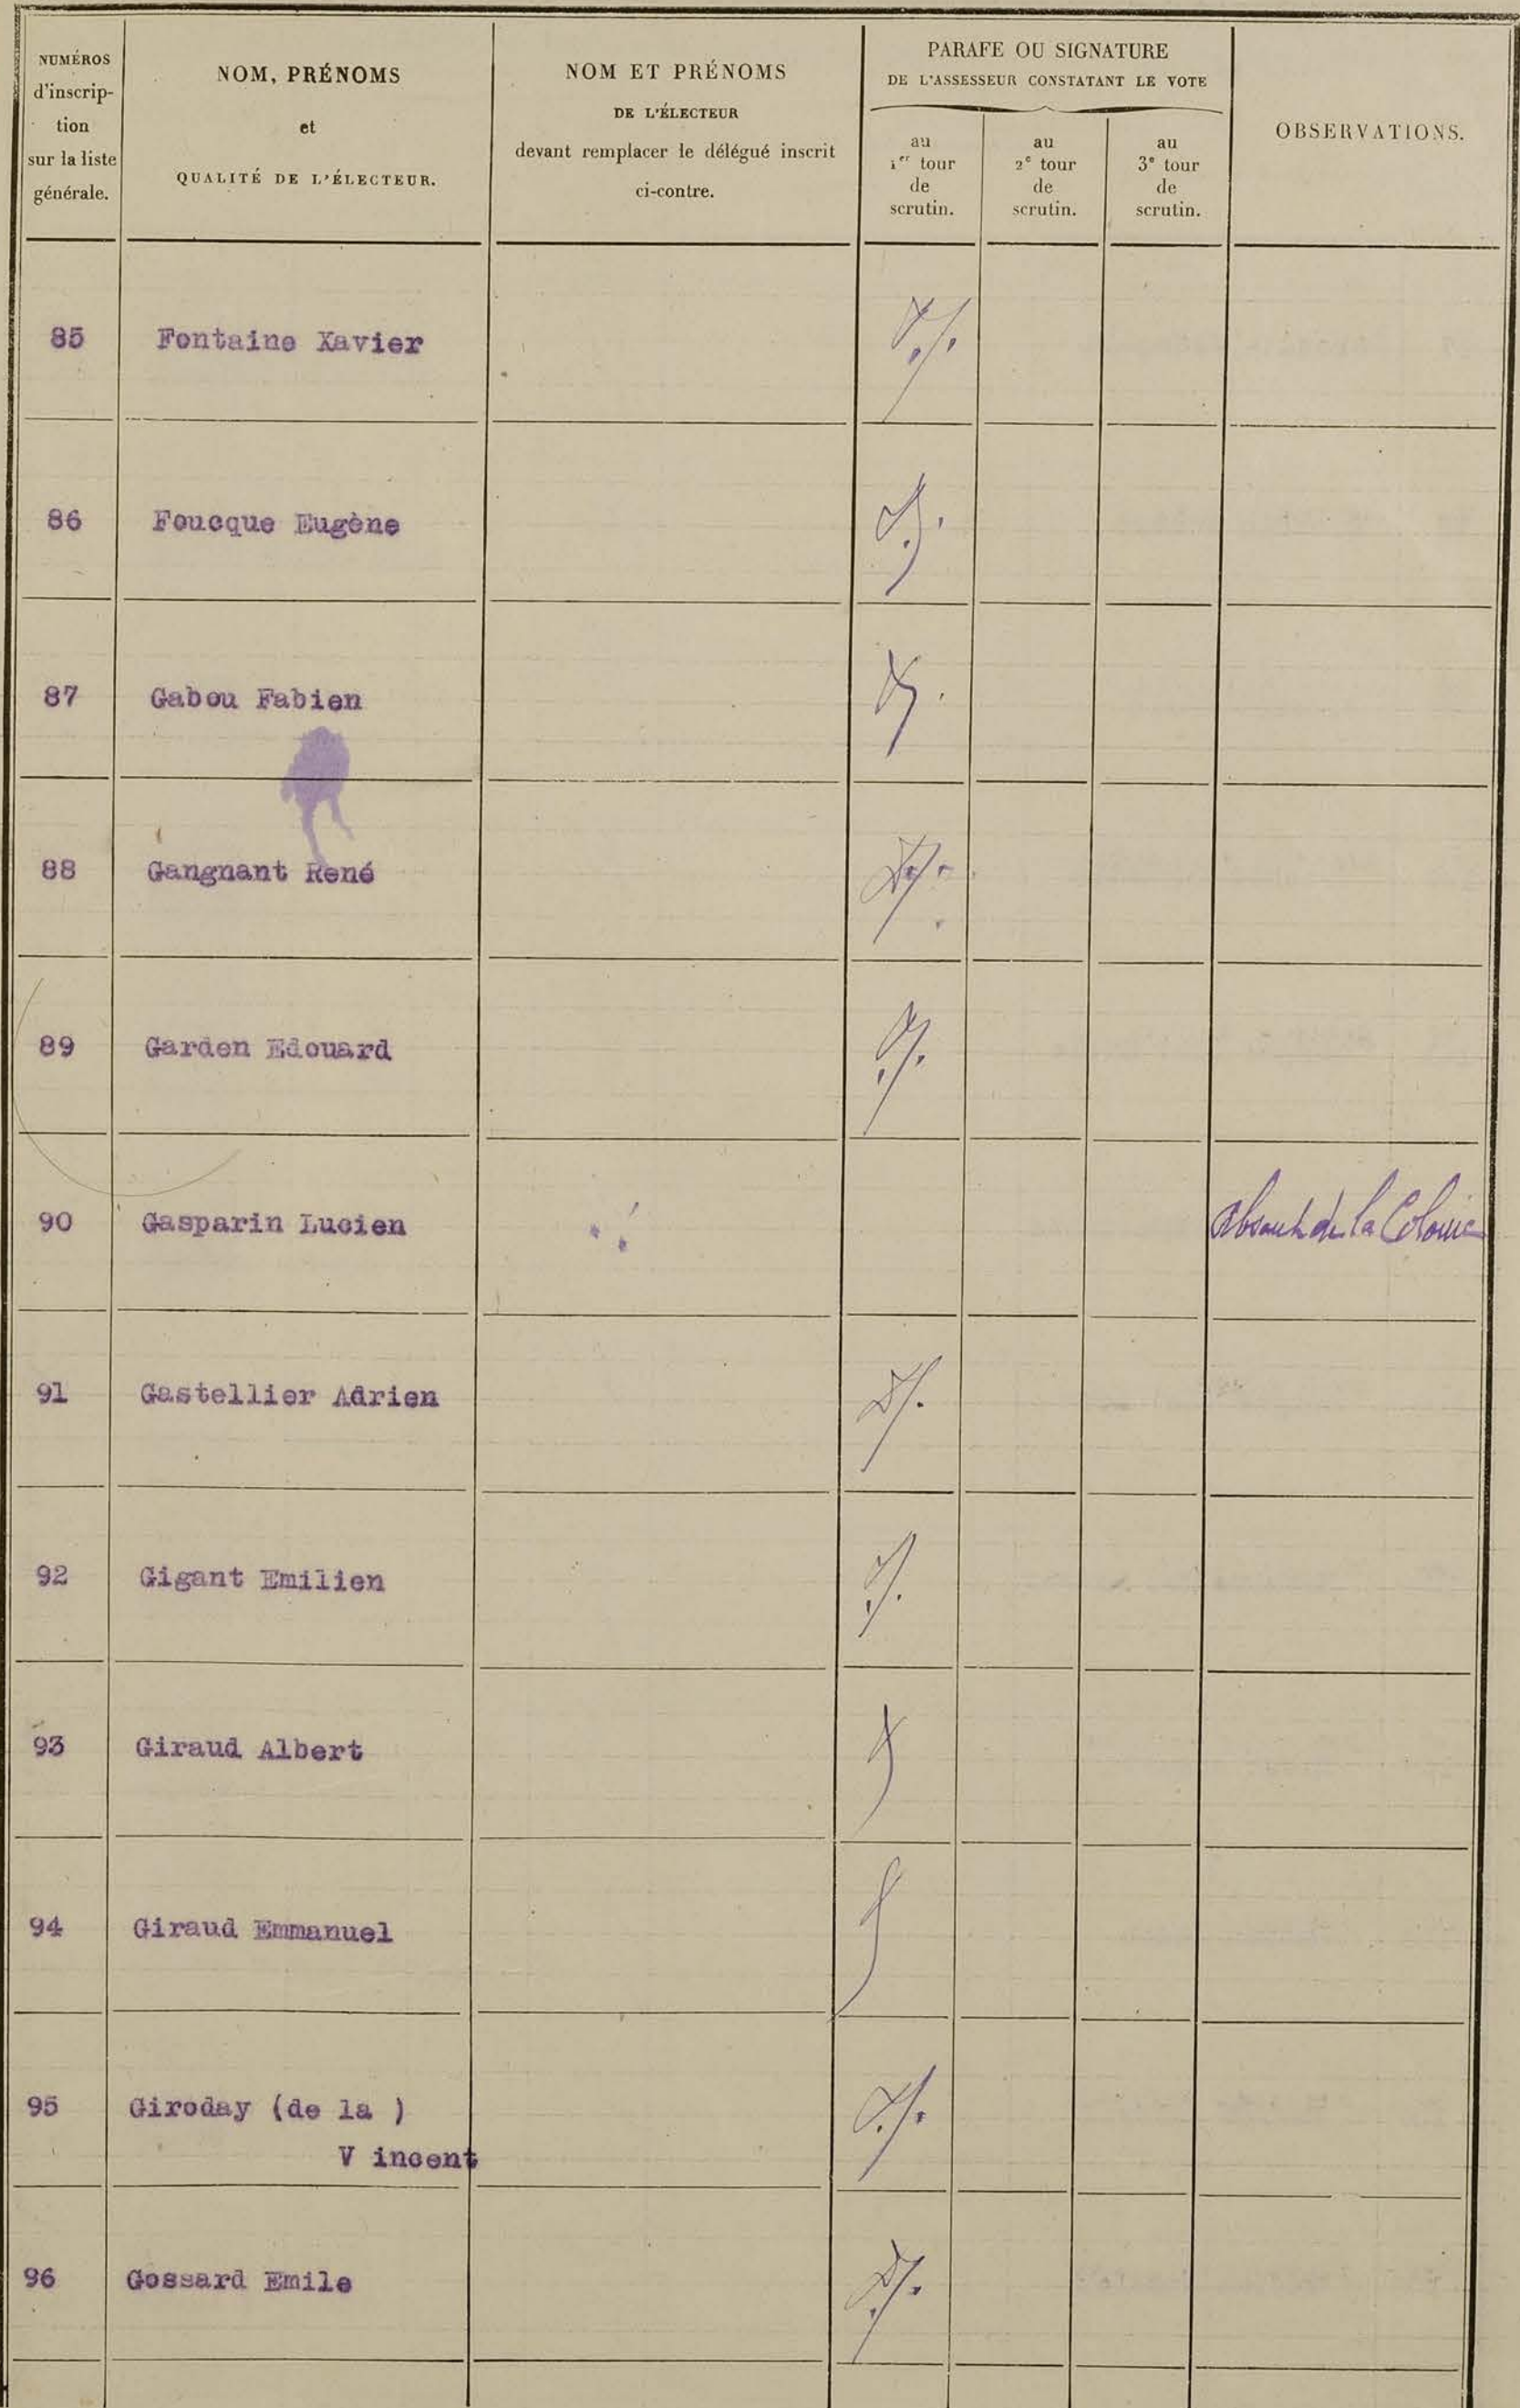 NUMÉROS
d'inscrip-
tion
sur la liste
générale.
NOM, PRÉNOMS
et
QUALITÉ DE L'ÉLECTEUR.
NOM ET PRÉNOMS
DE L'ÉLECTEUR
devant remplacer le délégué inscrit
ci-contre.
PARAFE OU SIGNATURE
DE L'ASSESSEUR CONSTATANT LE VOTE
au
1er tour
de
scrutin.
au
2e tour
de
scrutin.
au
3e tour
de
scrutin.
OBSERVATIONS.
85 Fontaine Xavier
86 Foucque Eugène
87 Gabou Fabien
88 Gangnant René
89 Garden Edouard
90 Gasparin Lucien Absent de la Colonie
91 Gastellier Adrien
92 Gigant Emilien
93 Giraud Albert
94 Giraud Emmanuel
95 Giroday (de la )
V incent
96 Gossard Emile